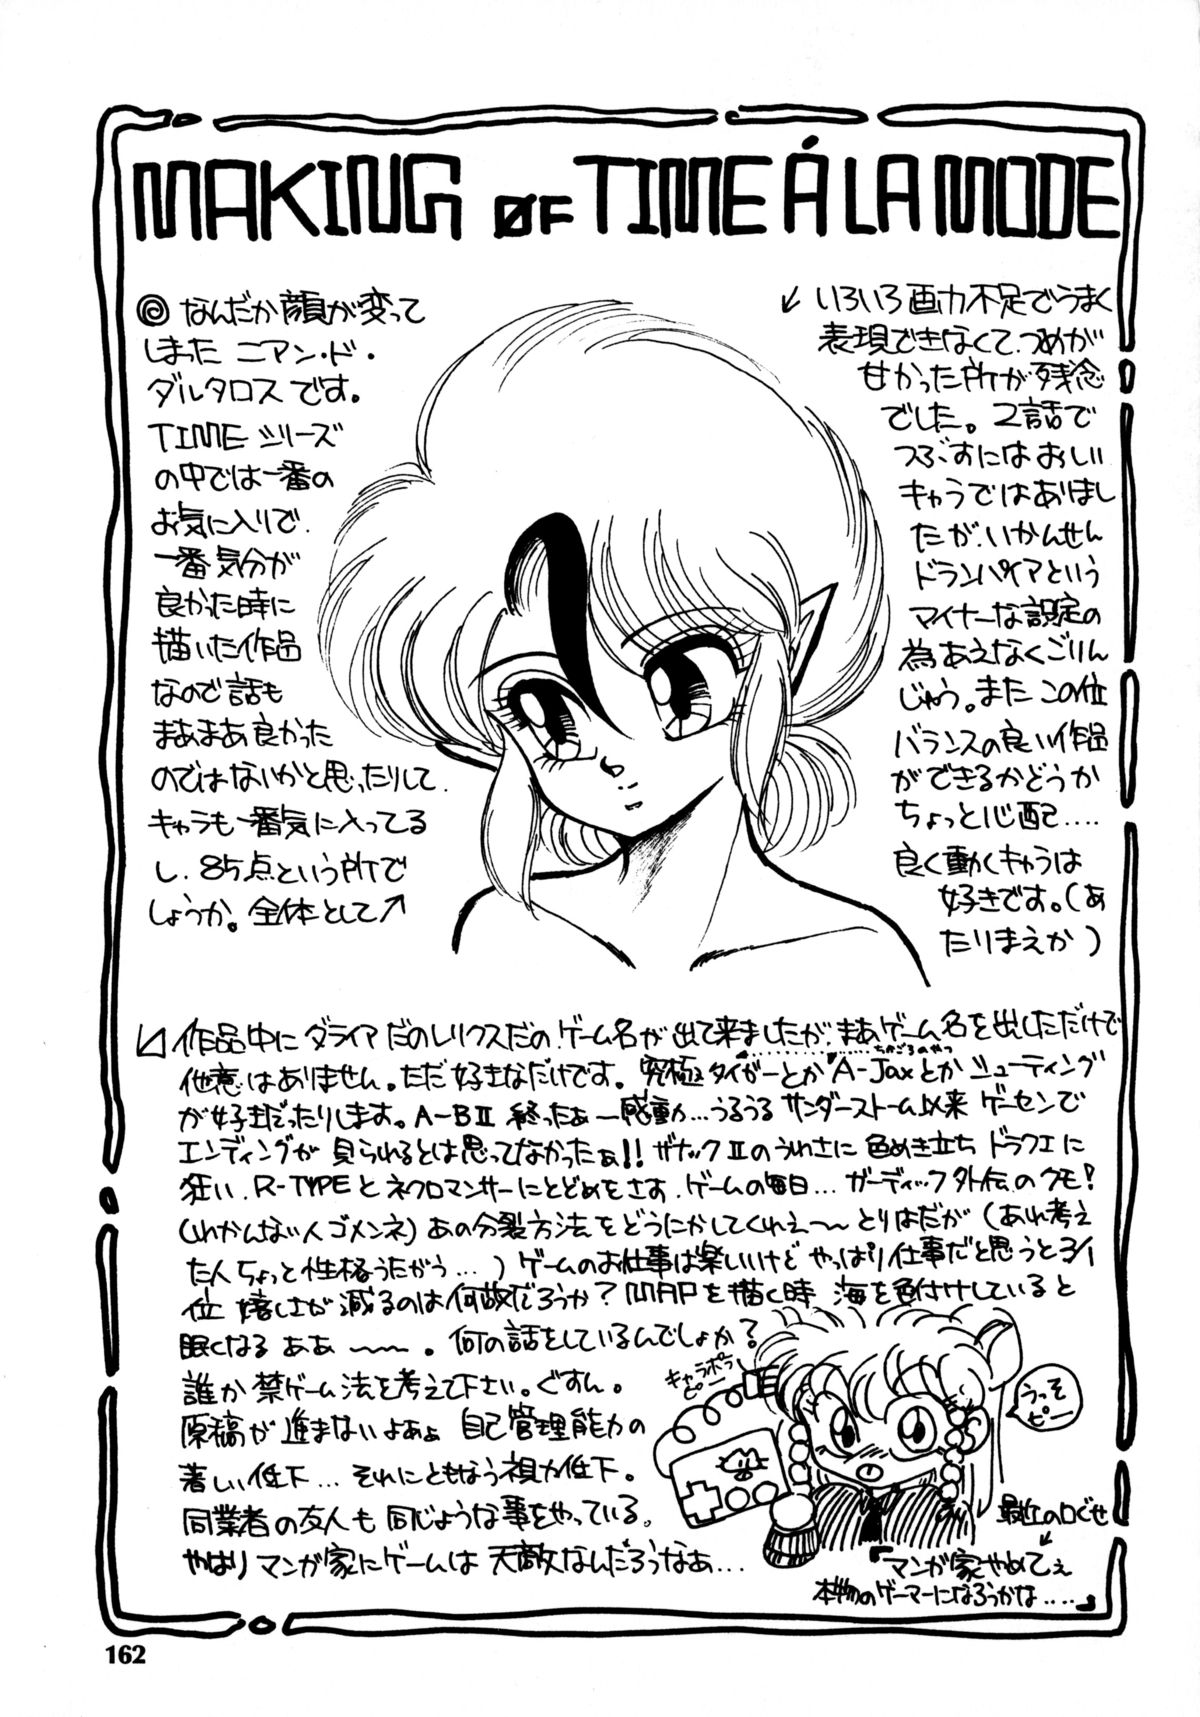 MAKING ØF TIME Á LA MODE
◎なんだか顔が変って
しまった ニアン・ド・
ダルタロスです。
TIMEシリーズ
の中では一番の
お気に入りで、
一番気分が
良かった時に
描いた作品
なので話も
まあまあ良かった
のではないかと思ったりして
キャラも一番気に入ってる
し、85点という所で
しょうか。全体として↗
↙いろいろ画力不足でうまく
表現できなくて、つめが
甘かった所が残念
でした。2話で
つぶすにはおしい
キャラではありまし
たが、いかんせん
ドランパイアという
マイナーな設定の
為あえなくごりん
じゅう。またこの位
バランスの良い作品
ができるかどうか
ちょっと心配‥‥
良く動くキャラは
好きです。(あ
たりまえか)
作品中にダライアだのレリクスだの、ゲーム名が出て来ましたが、まあゲーム名を出しただけで
他意はありません。ただ好きなだけです。究極タイガーとかA-Jaxとかシューティング
ちかごろのやつ
が好きだったりします。A-BⅡ 終ったぁー感動‥‥うるうる サンダーストーム以来 ゲーセンで
エンディングが見られるとは思ってなかったぁ!! ザナックⅡのうわさに色めき立ち ドラクエに
狂い、R-TYPEとネクロマンサーにとどめをさす、ゲームの毎日… ガーディック外伝のクモ!
(わかんない人ゴメンネ)あの分裂方法をどうにかしてくれえ〜〜とりはだが(あれ考え
た人ちょっと性格うたがう…)ゲームのお仕事は楽しいけど やっぱり仕事だと思うと3/1
位 嬉しさが減るのは何故だろうか?MAPを描く時 海を色付けしていると
眠くなる ああ〜〜。何の話をしているんでしょか?
誰か禁ゲーム法を考えて下さい。ぐすん。
原稿が進まないよぁぉ 自己管理能力の
著しい低下…それにともなう視力低下。
同業者の友人も同じような事をやっている。
やはりマンガ家にゲームは天敵なんだろうなあ…
キャラポラ
ピー
うっそ
ピー
最近の口ぐせ
『マンガ家やめてぇ
本物のゲーマーになろうかな‥‥』
162